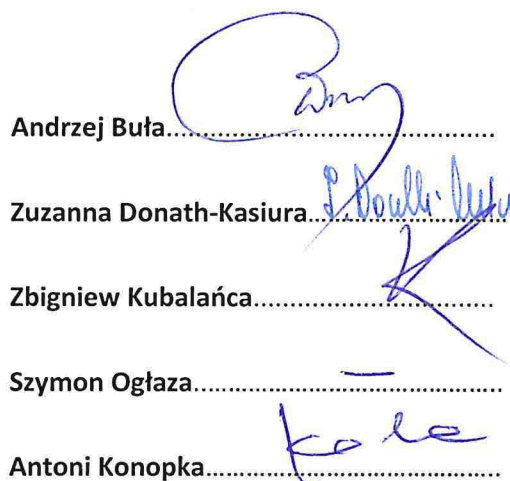 Andrzej Buła..........................................
Zuzanna Donath-Kasiura..........................
Zbigniew Kubalańca................................
Szymon Ogłaza.......................................
Antoni Konopka.....................................